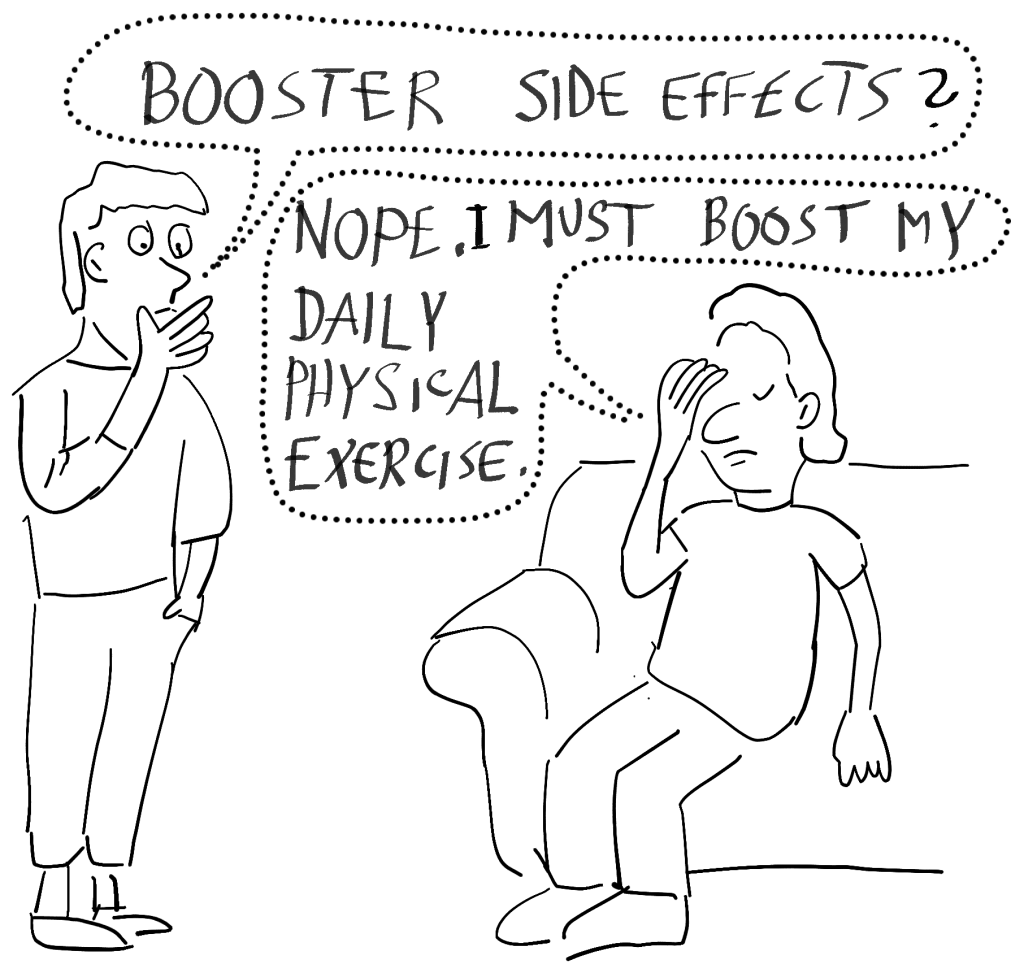 BOOSTER SIDE EFFECTS?
NOPE. I MUST BOOST MY
DAILY
PHYSICAL
EXERCISE.